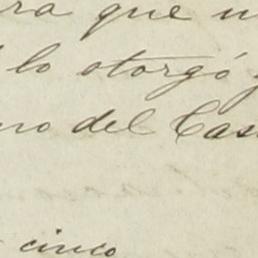 ra que u
lo otorgó y
no del Cas
cinco